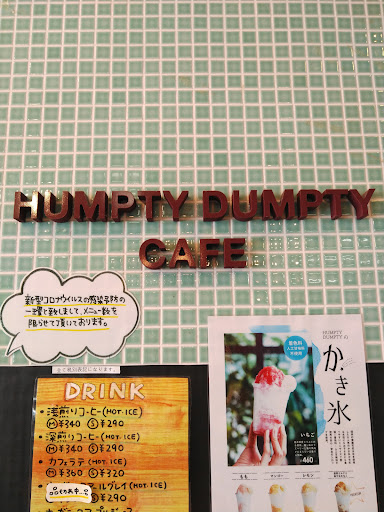 HUMPTY DUMPTY
CAFE
新型コロナウイルスの感染予防の
一環と致しまして、メニュー数を
限らせて頂いております。
全て税別表記になります。
DRINK
・浅煎りコーヒー(HOT.ICE)
Ⓜ¥340 Ⓢ¥290
・深煎りコーヒー(HOT.ICE)
Ⓜ¥340 Ⓢ¥290
・カフェラテ(HOT.ICE)
Ⓜ¥360 Ⓢ¥320
ールグレイ(HOT.ICE)
品切れ中
Ⓢ¥290
HUMPTY
DUMPTY の
かき氷
着色料
人工甘味料
不使用
いちご
¥460
もも
マンゴー
レモン